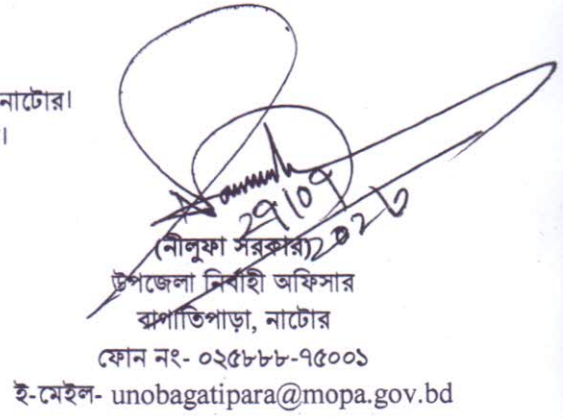 নাটোর।
।
(নীলুফা সরকার)
উপজেলা নির্বাহী অফিসার
বাগাতিপাড়া, নাটোর
ফোন নং- ০২৫৮৮৮-৭৫০০১
ই-মেইল- unobagatipara@mopa.gov.bd